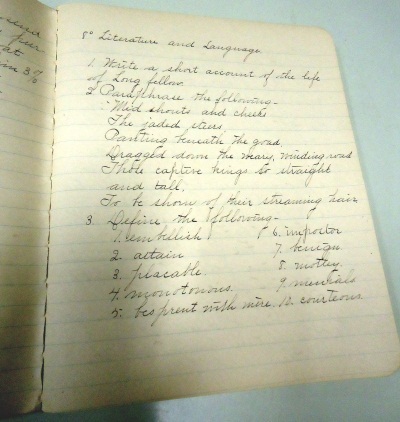 8° Literature and Language
1. Write a short account of the life
of Longfellow
2. Paraphrase the following-
"Mid shouts and cheers
The jaded steers,
Panting beneath the goad,
Dragged down the weary, winding road
Those captive kings so straight
and tall,
To be shorn of their streaming hair
3. Define the following-
1. embellish 6. impostor
2. attain 7. benign
3. placable 8. motley
4. monotonous 9. menials
5. besprent with mire 10. courteous
at
in 3%